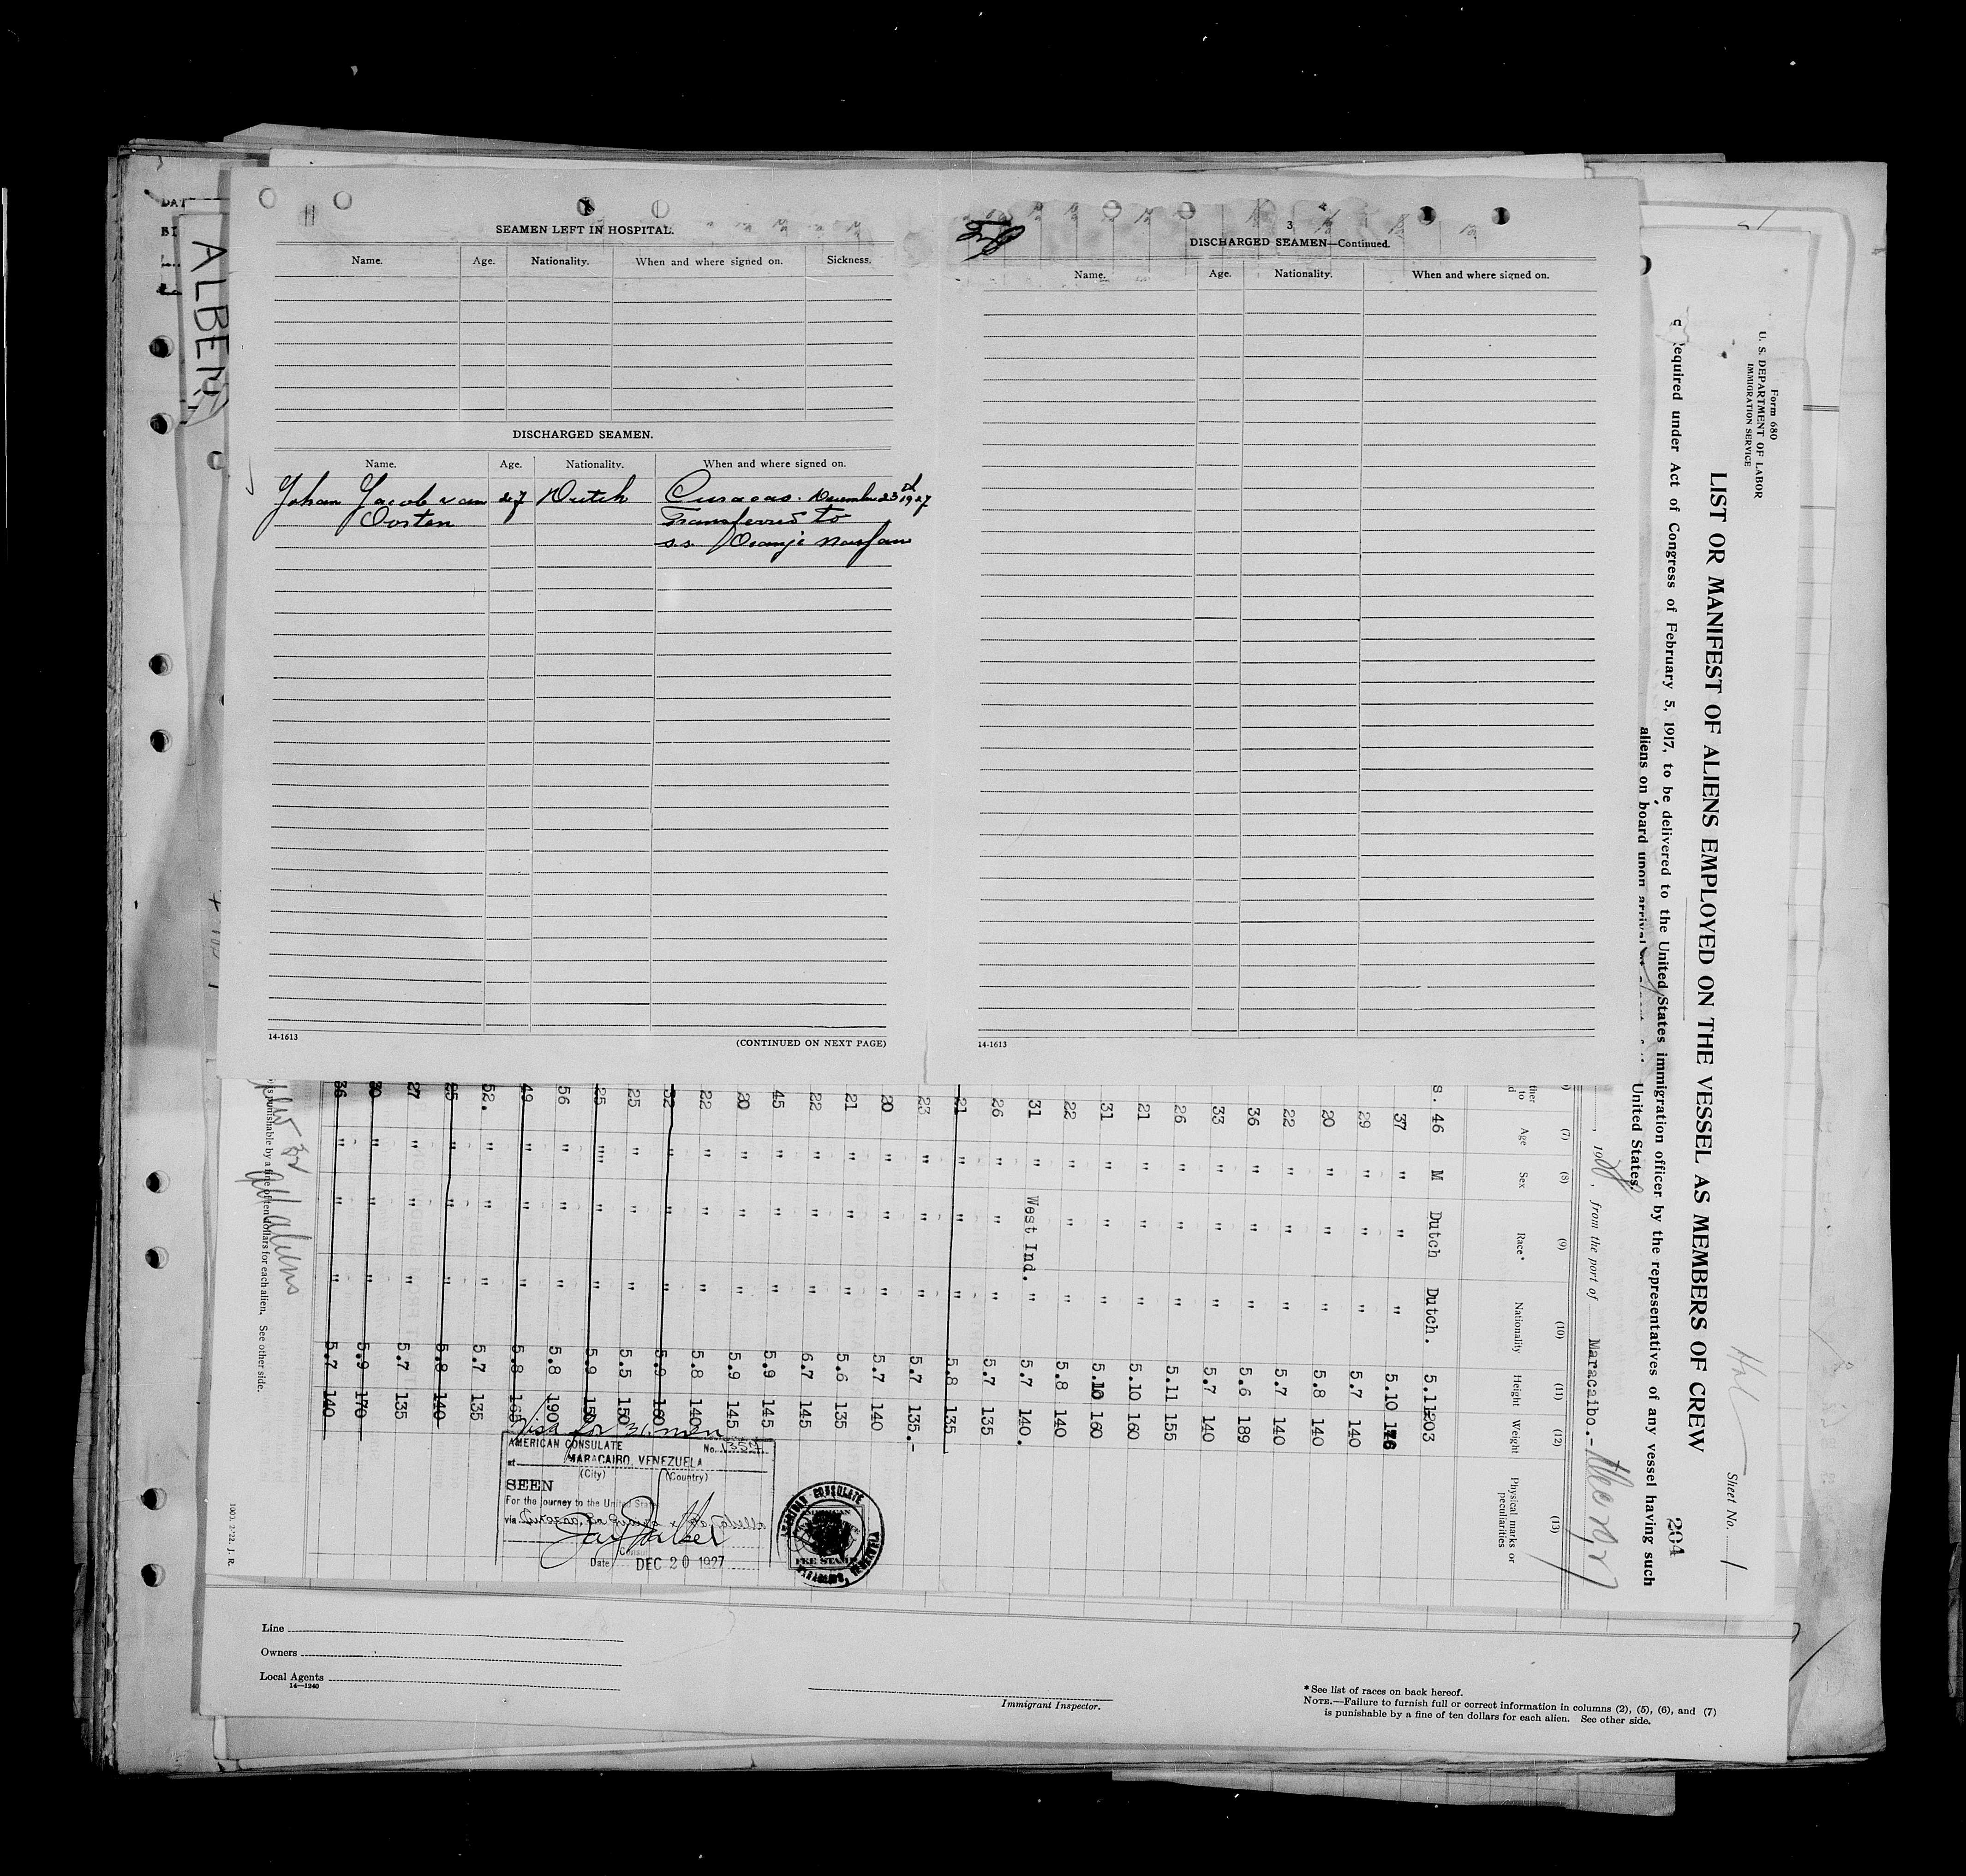 SEAMEN LEFT IN HOSPITAL.
Name. Age. Nationality. When and where signed on. Sickness.
DISCHARGED SEAMEN.
Name. Age. Nationality. When and where signed on.
Johan Jacob van 27 Dutch Curacao. December 23d 1927
Oosten Transferred to
s.s. Oranje Nassau
14-1613 (CONTINUED ON NEXT PAGE)
3
DISCHARGED SEAMEN—Continued.
Name. Age. Nationality. When and where signed on.
14-1613
ALBEM
Form 680
U. S. DEPARTMENT OF LABOR
IMMIGRATION SERVICE
Sheet No. 1
LIST OR MANIFEST OF ALIENS EMPLOYED ON THE VESSEL AS MEMBERS OF CREW
204
Required under Act of Congress of February 5, 1917, to be delivered to the United States immigration officer by the representatives of any vessel having such
aliens on board upon arrival United States.
, from the port of Maracaibo.-
(7) (8) (9) (10) (11) (12) (13)
Age Sex Race* Nationality Height Weight Physical marks or peculiarities
s. 46 M Dutch Dutch. 5.11 203
37 " " " 5.10
29 " " " 5.7 140
20 " " " 5.8 140
22 " " " 5.7 140
36 " " " 5.6 189
33 " " " 5.7 140
26 " " " 5.11 155
21 " " " 5.10 160
31 " " " 5.10 160
22 " " " 5.8 140
31 " West Ind. " 5.7 140.
26 " " " 5.7 135
21 " " " 5.8 135
23 " " " 5.7 135.-
20 " " " 5.7 140
21 " " " 5.6 135
22 " " " 6.7 145
45 " " " 5.9 145
20 " " " 5.9 145
22 " " " 5.8 140
32 " " " 5.9 160
25 " " " 5.5 150
25 "" " " 5.9 150
56 " " " 5.8 190
49 " " " 5.8 165
52. " " " 5.7 135
25 " " " 5.8 140
27 " " " 5.7 135
30 " " " 5.9 170
36 " " " 5.7 140
is punishable by a fine of ten dollars for each alien. See other side.
aliens
1003. 2-'22. J. R.
Visa for 31 men
AMERICAN CONSULATE No.
at MARACAIBO, VENEZUELA
(City) (Country)
SEEN
For the journey to the United States
via Curacao, La Guaira
Consul
Date DEC 20 1927
AMERICAN CONSULATE
MARACAIBO VENEZUELA
FEE STAMP
Line
Owners
Local Agents
14—1240
Immigrant Inspector.
*See list of races on back hereof.
NOTE.—Failure to furnish full or correct information in columns (2), (5), (6), and (7)
is punishable by a fine of ten dollars for each alien. See other side.